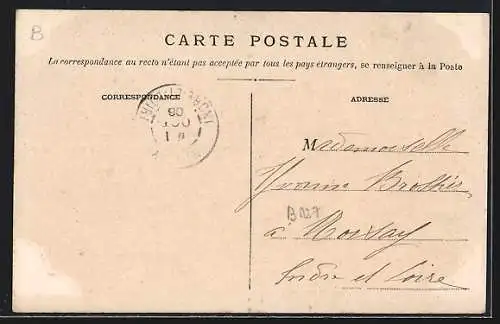 B
CARTE POSTALE
La correspondance au recto n'étant pas acceptée par tous les pays étrangers, se renseigner à la Poste
CORRESPONDANCE
ADRESSE
OCT
06
Mademoiselle
Yvonne
B127
à
Indre et Loire